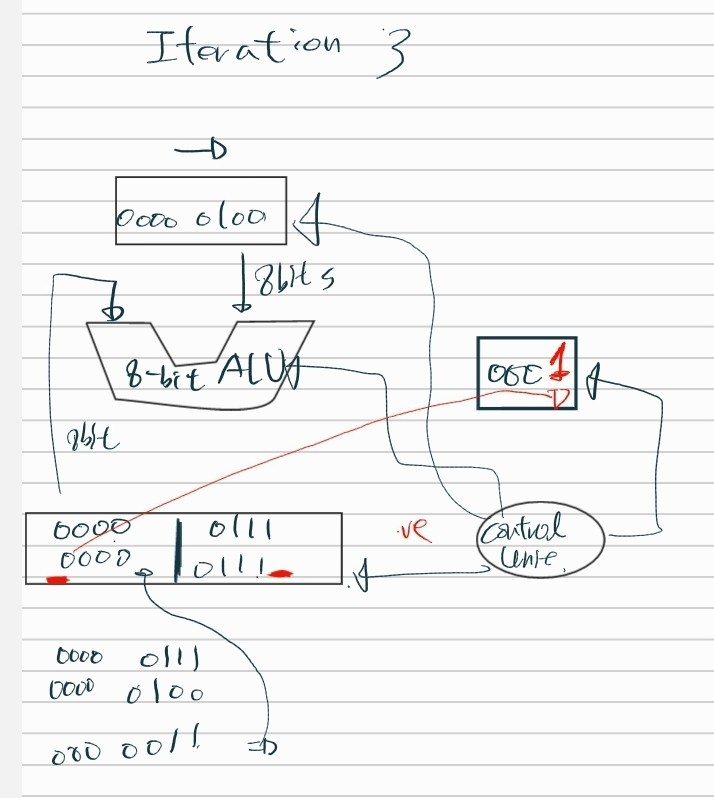 Iteration 3
0000 0100
8bits
8-bit ALU
1
8bit
0000 0111
0000 0111
-ve
Control
0000 0111
0000 0100
000 0011